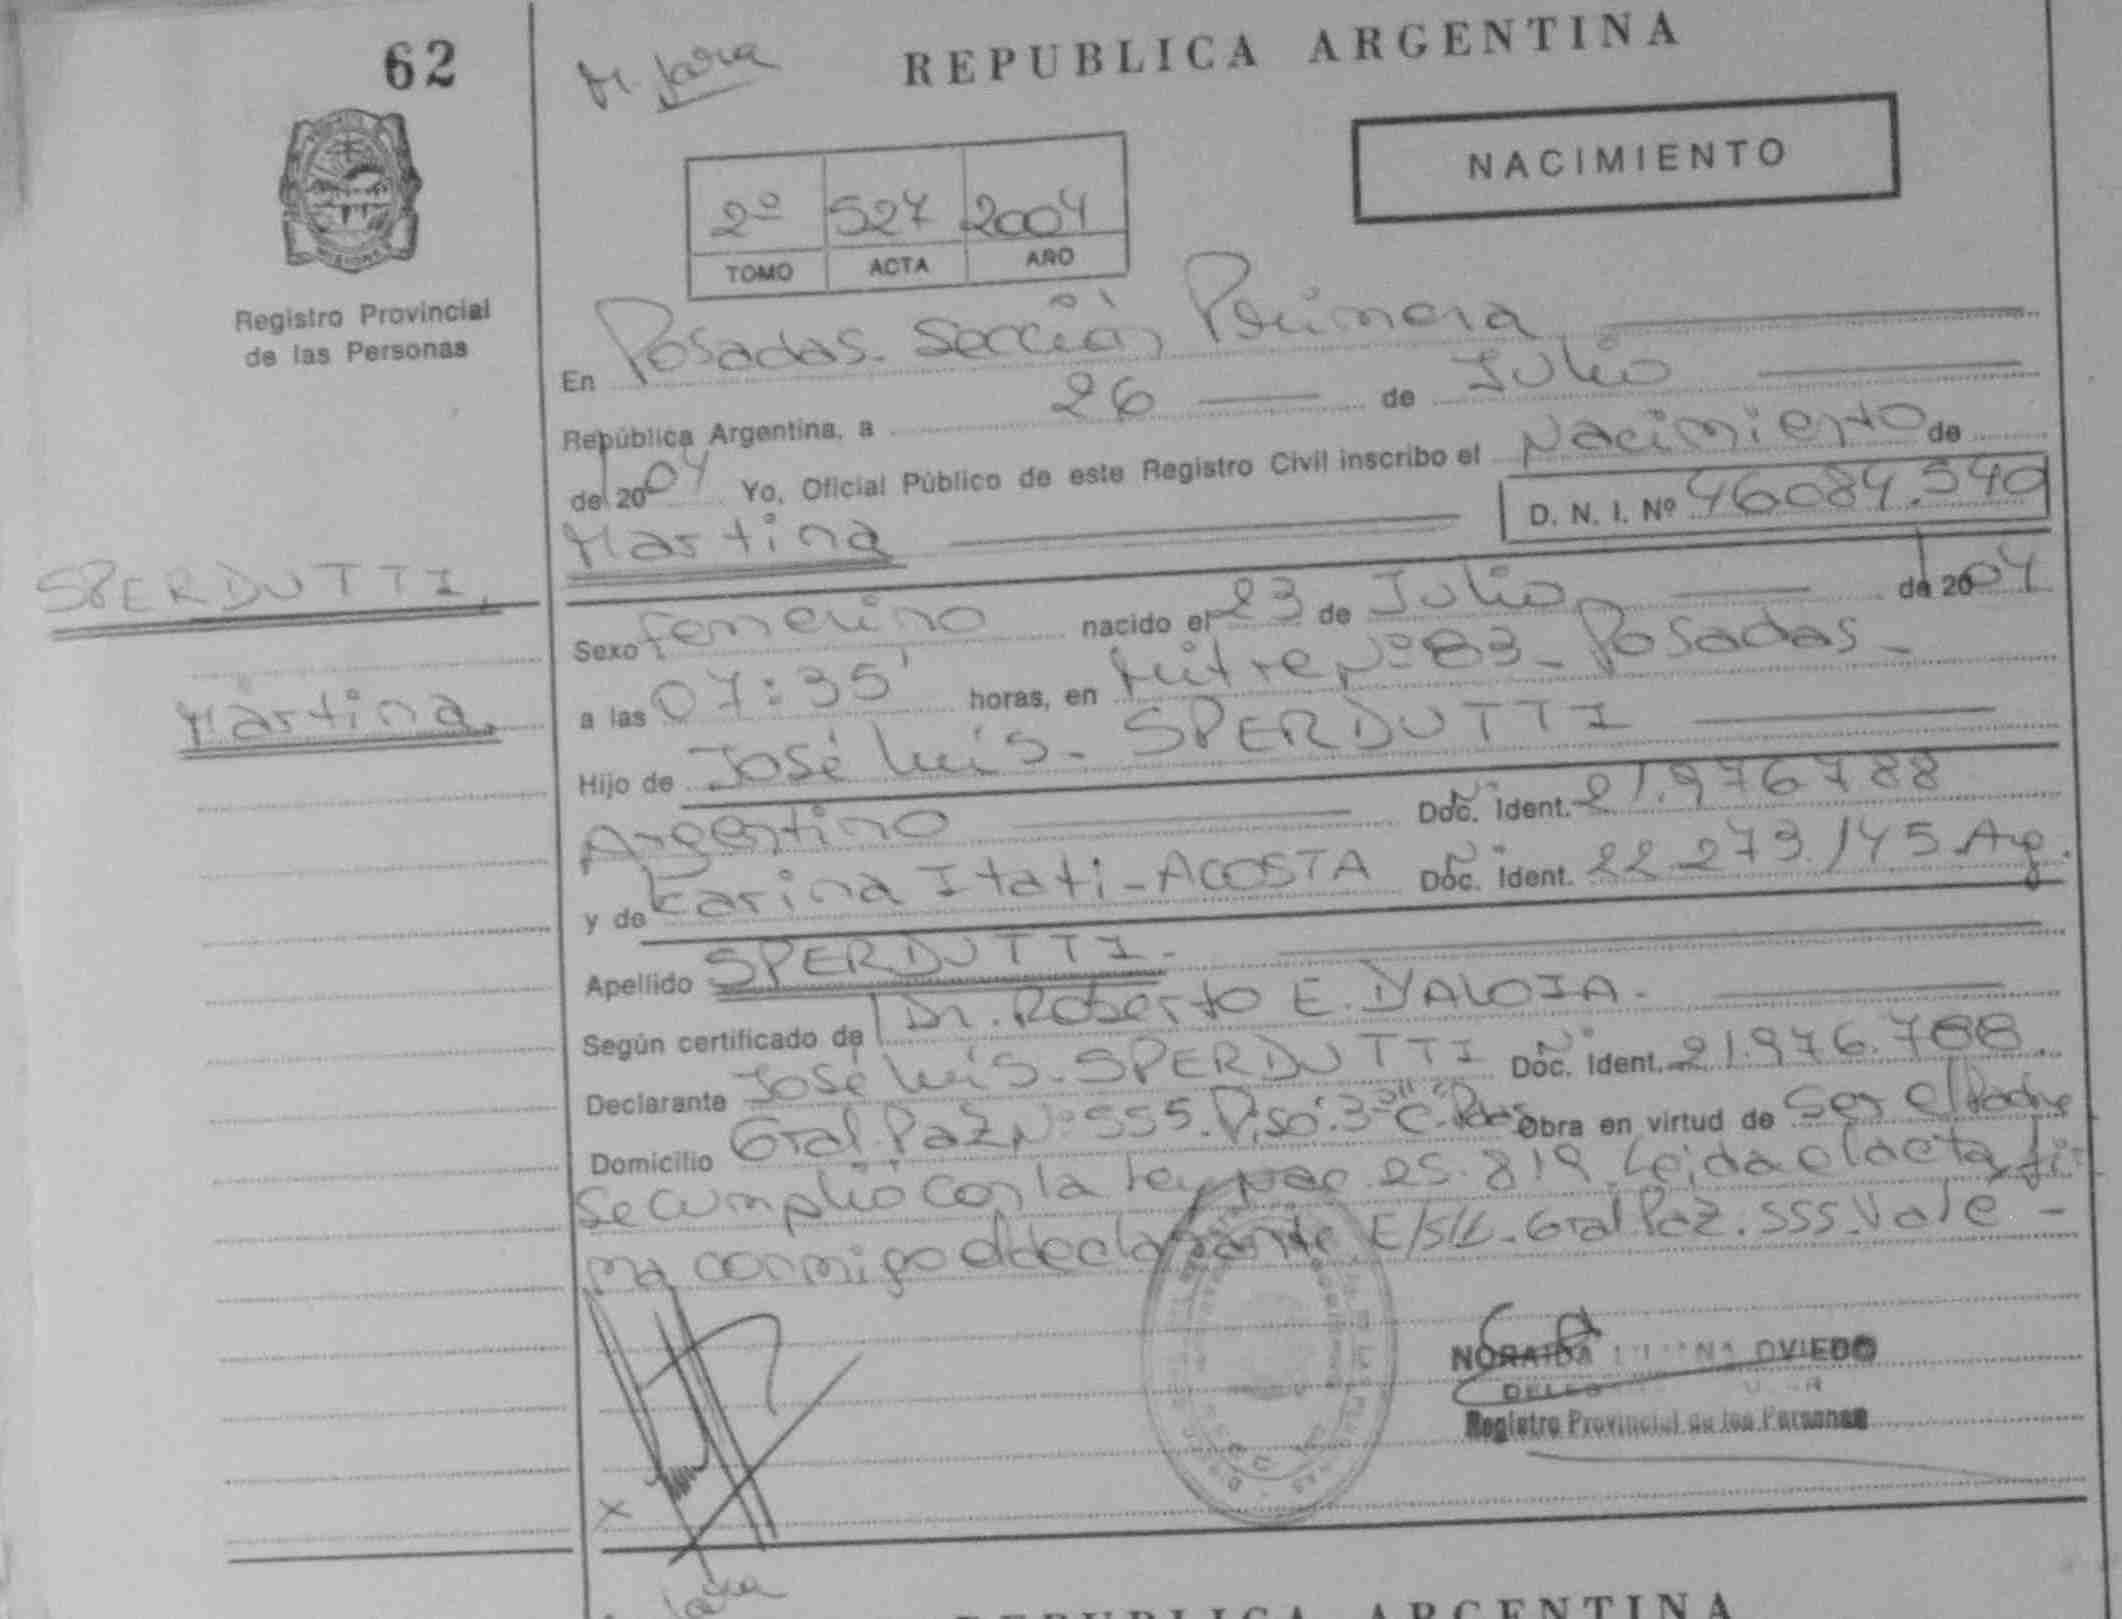 62
M. Jara
REPUBLICA ARGENTINA
NACIMIENTO
2º 527 2004
TOMO ACTA AÑO
Registro Provincial
de las Personas
En Posadas. Sección Primera
República Argentina, a 26 de Julio
del 2004 Yo, Oficial Público de este Registro Civil inscribo el Nacimiento de
Martina D. N. I. Nº 46.084.540
SPERDUTTI,
Martina.
Sexo femenino nacido el 23 de Julio del 2004
a las 07:35' horas, en Mitre Nº 83 - Posadas -
Hijo de José Luis - SPERDUTTI
Argentino Doc. Ident. 21.976788
y de Karina Itati - ACOSTA Doc. Ident. 22.273.145 Arg.
Apellido SPERDUTTI -
Según certificado de Dr. Roberto E. D'ALOIA -
Declarante José Luis - SPERDUTTI Doc. Ident. 21.976.788
Domicilio Gral. Paz Nº 555. Piso: 3º "C" Obra en virtud de ser el Padre
Se cumplió con la Ley Nac 25.819. Leida el acta, fir-
ma conmigo el declarante. E/S/L. Gral Paz. 555. Vale -
OVIEDO
Registro Provincial de las Personas
REPUBLICA ARGENTINA